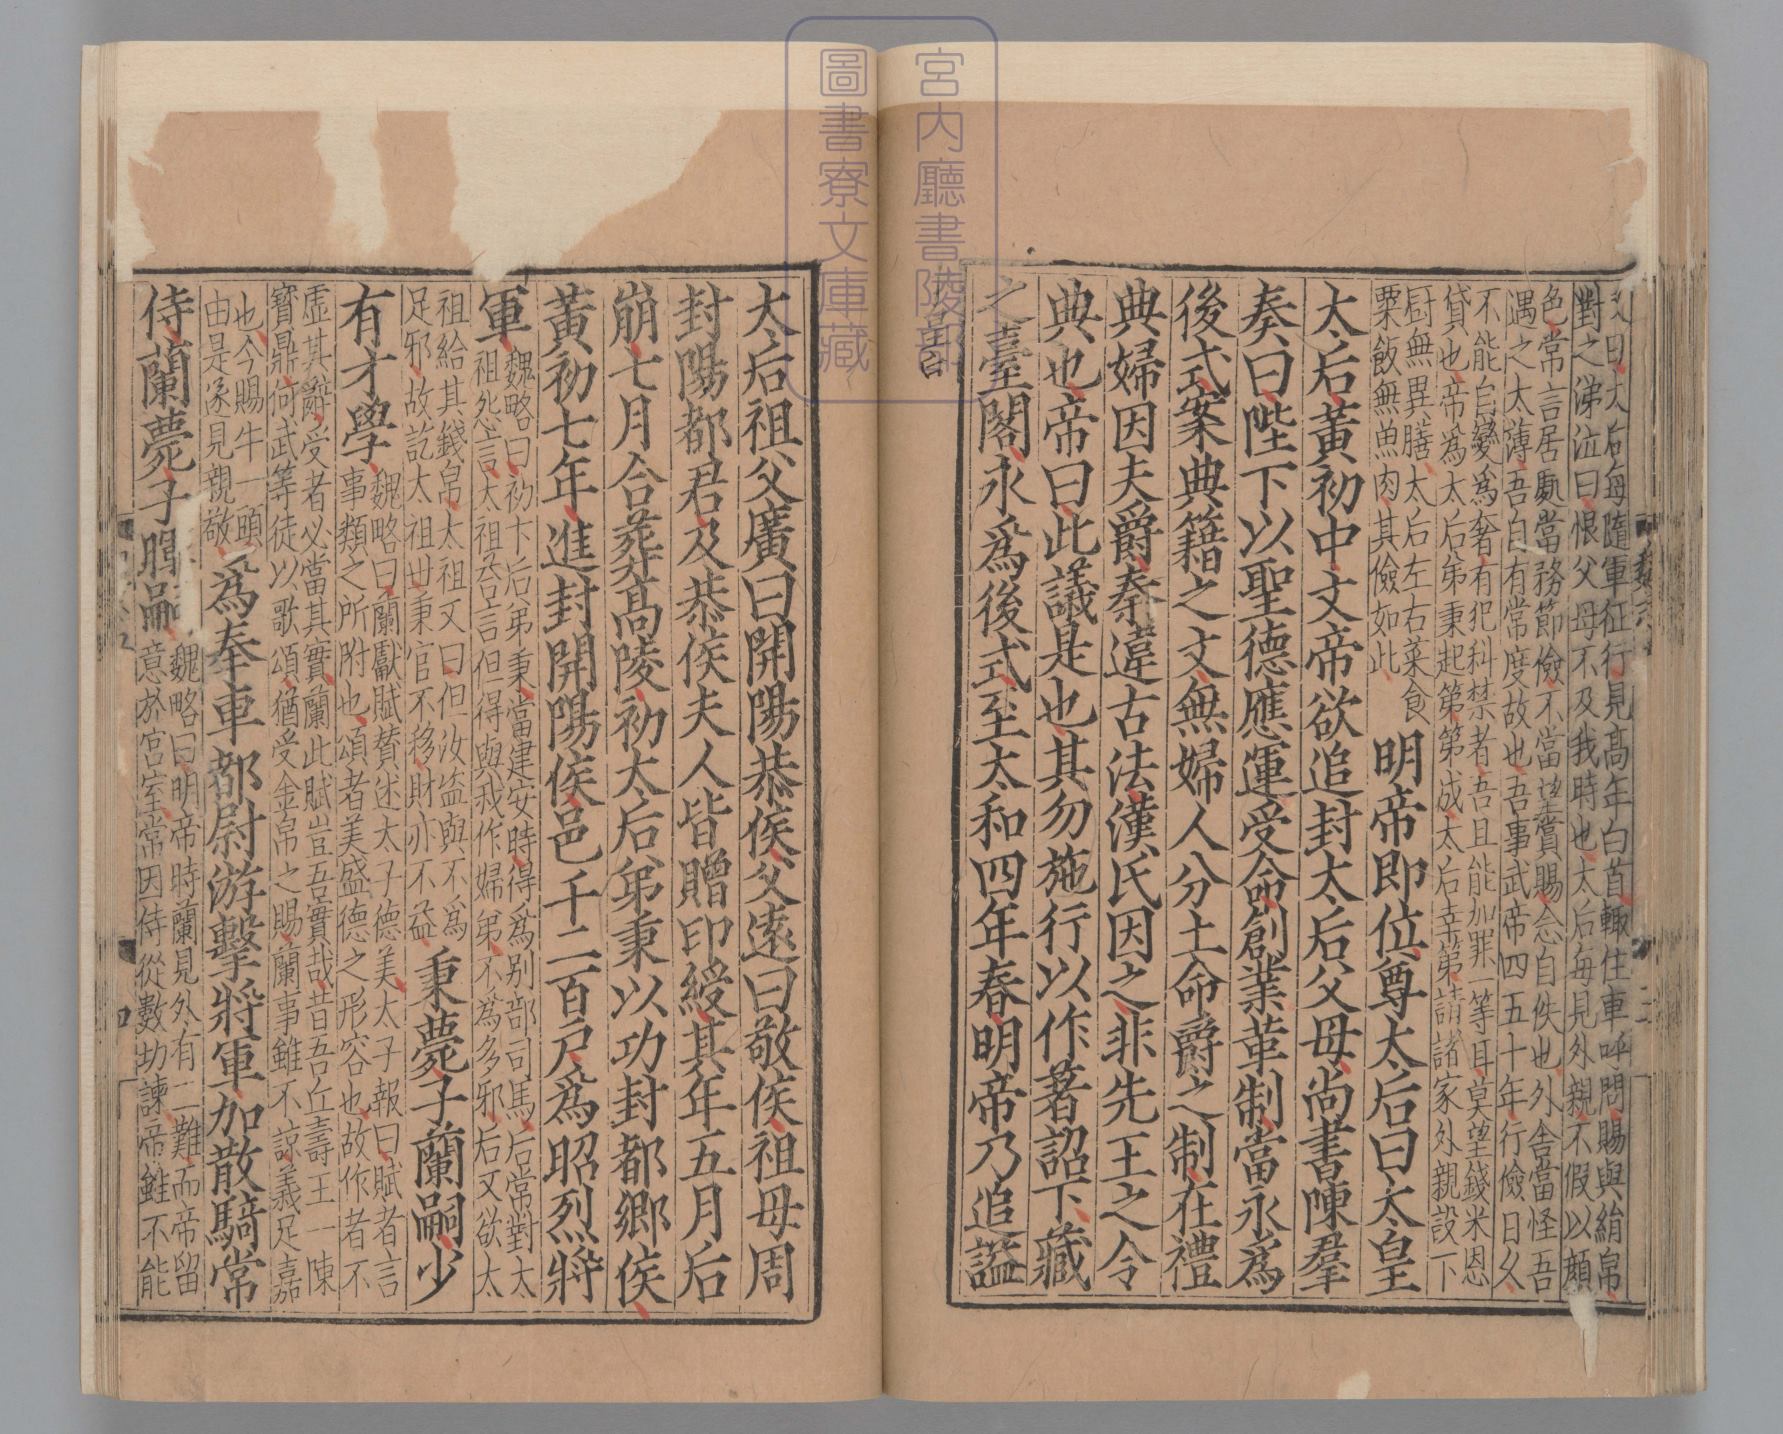 又曰太后每隨軍征行見高年白首輒住車呼問賜與絹帛
對之涕泣曰恨父母不及我時也太后每見外親不假以顔
色常言居處當務節儉不當望賞賜念自佚也外舍當怪吾
遇之太薄吾自有常度故也吾事武帝四五十年行儉日久
不能自變爲奢有犯科禁者吾且能加罪一等耳莫望錢米恩
貸也帝為太后弟秉起第第成太后幸第請諸家外親設下
厨無異膳太后左右菜食
粟飯無魚肉其儉如此
明帝即位尊太后曰太皇
太后黃初中文帝欲追封太后父母尚書陳羣
奏曰陛下以聖德應運受命創業革制當永爲
後式案典籍之文無婦人分土命爵之制在禮
典婦因夫爵秦違古法漢氏因之非先王之令
典也帝曰此議是也其勿施行以作著詔下藏
之臺閣永爲後式至太和四年春明帝乃追謚
太后祖父廣曰開陽恭侯父遠曰敬侯祖母周
封陽都君及恭侯夫人皆贈印綬其年五月后
崩七月合葬高陵初太后弟秉以功封都鄉侯
黃初七年進封開陽侯邑千二百戶爲昭烈將
軍
魏略曰初卞后弟秉當建安時得爲別部司馬后常對太
祖怨言太祖荅言但得與我作婦弟不爲多邪后又欲太
祖給其錢帛太祖又曰但汝盜與不爲
足邪故訖太祖世秉官不移財亦不益
秉薨子蘭嗣少
有才學
魏略曰蘭獻賦贊述太子德美太子報曰賦者言
事類之所附也頌者美盛德之形容也故作者不
虛其辭受者必當其實蘭此賦豈吾實哉昔吾丘壽王一陳
寳鼎何武等徒以歌頌猶受金帛之賜蘭事雖不諒義足嘉
也今賜牛一頭
由是遂見親敬
爲奉車都尉游擊將軍加散騎常
侍蘭薨子暉嗣
魏略曰明帝時蘭見外有二難而帝留
意於宮室常因侍從數切諫帝雖不能
宮內廳書陵部
圖書寮文庫藏